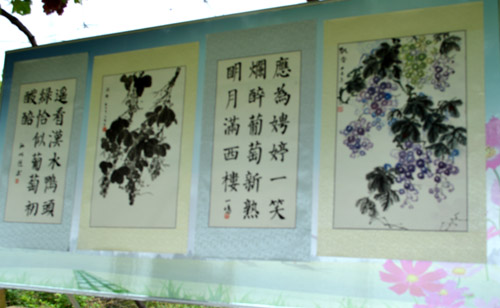 應為娉婷一笑
爛醉葡萄新熟
明月滿西樓
遥看漢水鴨頭
綠恰似葡萄初
醱醅